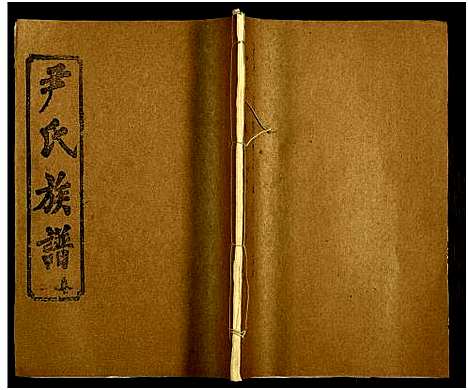 尹氏族譜